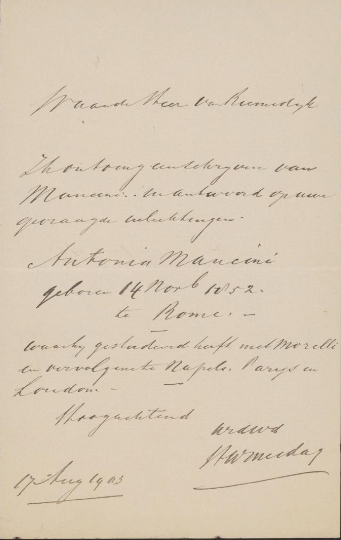 Waarde Heer van Riemsdijk
Ik ontving een schrijven van
Mancini. in antwoord op uwe
gevraagde inlichtingen.
Antonio Mancini
geboren 14 Novb 1852.
te Rome. –
waarbij gestudeerd heeft met Morelli
en vervolgens te Napels. Parijs en
London –
Hoogachtend
uw dwd
HWMesdag
17 Aug 1903